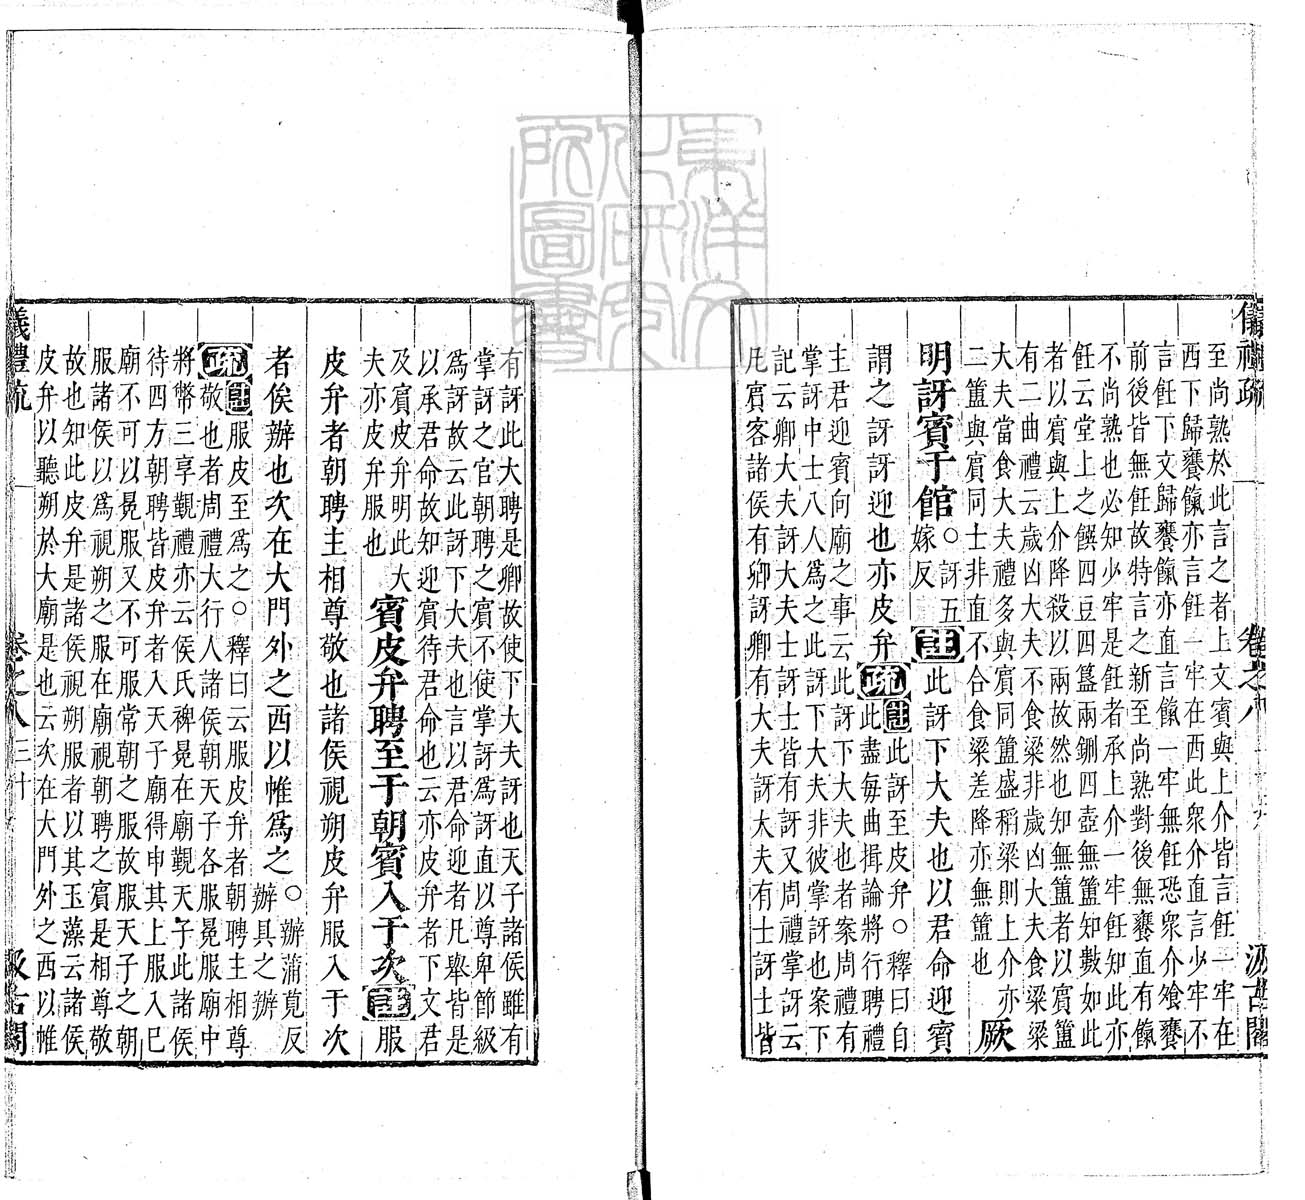 儀禮疏 卷之八 汲古閣
至尚熟於此言之者上文賓與上介皆言飪一牢在
西下歸饔餼亦言飪一牢在西此衆介直言少牢不
言飪下文歸饔餼亦直言餼一牢無飪恐衆介飧饔
前後皆無飪故特言之新至尚熟對後無饔直有餼
不尚熟也必知少牢是飪者承上介一牢飪知此亦
飪云堂上之饌四豆四簋兩鉶四壺無簠知數如此
者以賓與上介降殺以兩故然也知無簠者以賓簠
有二曲禮云歲凶大夫不食粱非歲凶大夫食粱粱
大夫當食大夫禮多與賓同簠盛稻粱則上介亦
二簠與賓同士非直不合食粱差降亦無簠也 厥
明訝賓于館 ○訝五嫁反 註 此訝下大夫也以君命迎賓
謂之訝訝迎也亦皮弁 疏 註此訝至皮弁○釋曰自
此盡每曲揖論將行聘禮
主君迎賓向廟之事云此訝下大夫也者案周禮有
掌訝中士八人爲之此訝下大夫非彼掌訝也案下
記云卿大夫訝大夫士訝士皆有訝又周禮掌訝云
凡賓客諸侯有卿訝卿有大夫訝大夫有士訝士皆
有訝此大聘是卿故使下大夫訝也天子諸侯雖有
掌訝之官朝聘之賓不使掌訝爲訝直以尊卑節級
爲訝故云此訝下大夫也言以君命迎者凡舉皆是
以承君命故知迎賓待君命也云亦皮弁者下文君
及賓皮弁明此大
夫亦皮弁服也 賓皮弁聘至于朝賓入于次 註 服
皮弁者朝聘主相尊敬也諸侯視朔皮弁服入于次
者俟辦也次在大門外之西以帷爲之 ○辦蒲莧反
辦具之辦
疏 註服皮至爲之○釋曰云服皮弁者朝聘主相尊
敬也者周禮大行人諸侯朝天子各服冕服廟中
將幣三享覲禮亦云侯氏裨冕在廟覲天子此諸侯
待四方朝聘皆皮弁者入天子廟得申其上服入已
廟不可以冕服又不可服常朝之服故服天子之朝
服諸侯以爲視朔之服在廟視朝聘之賓是相尊敬
故也知此皮弁是諸侯視朔服者以其玉藻云諸侯
皮弁以聽朔於大廟是也云次在大門外之西以帷
儀禮疏 卷之八 三十 汲古閣